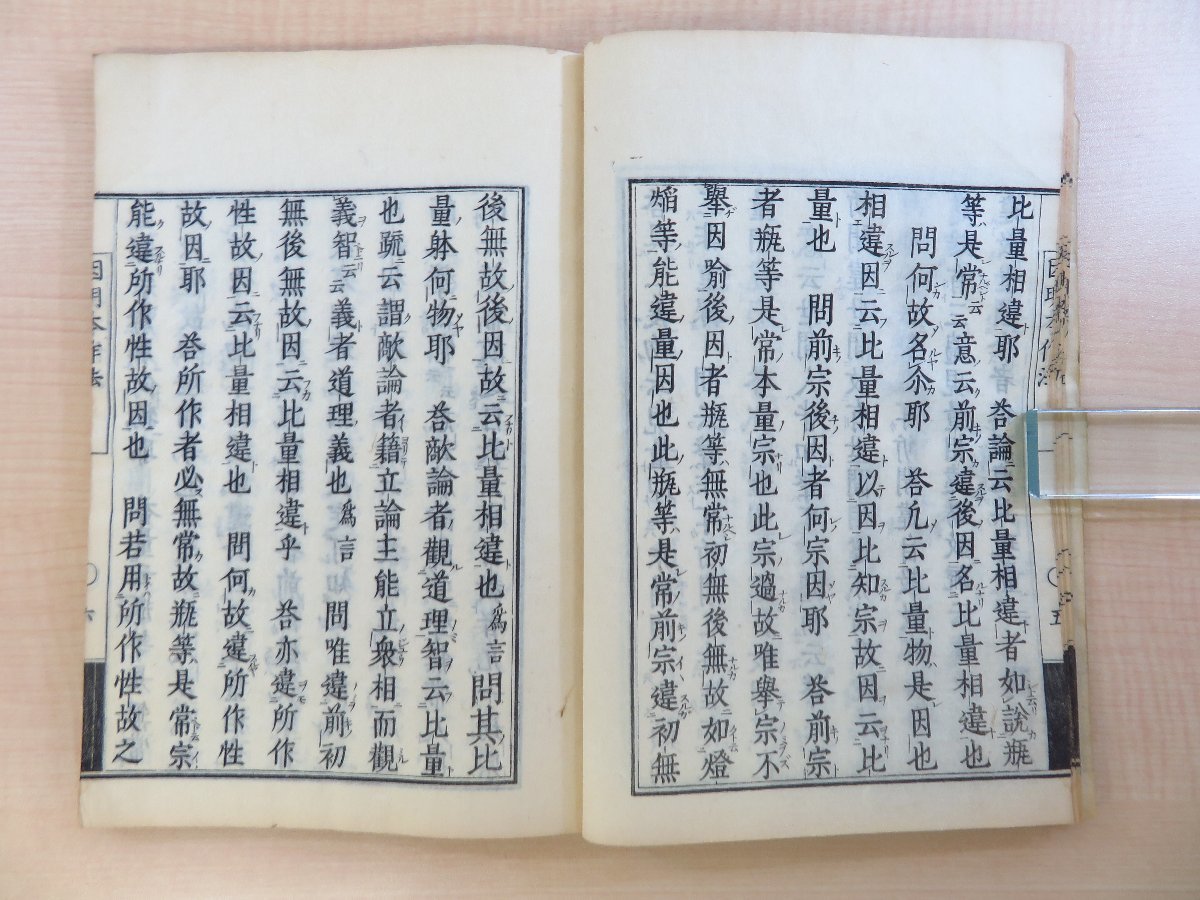 比量相違耶　荅論云比量相違者如說瓶
等是常云云意云前宗違後因名比量相違也
問何故名尒耶　荅凡云比量物是因也
相違因云比量相違以因比知宗故因云比
量也　問前宗後因者何宗因耶　荅前宗
者瓶等是常本量宗也此宗過故唯擧宗不
擧因喻後因者瓶等無常初無後無故如燈
焔等能違量因也此瓶等是常前宗違初無
後無故後因故云比量相違也爲言問其比
量躰何物耶　荅敵論者觀道理智云比量
也疏云謂敵論者籍立論主能立衆相而觀
義智云云義者道理義也爲言　問唯違前初
無後無故因云比量相違乎　荅亦違所作
性故因云比量相違也　問何故違所作性
故因耶　荅所作者必無常故瓶等是常宗
能違所作性故因也　問若用所作性故之